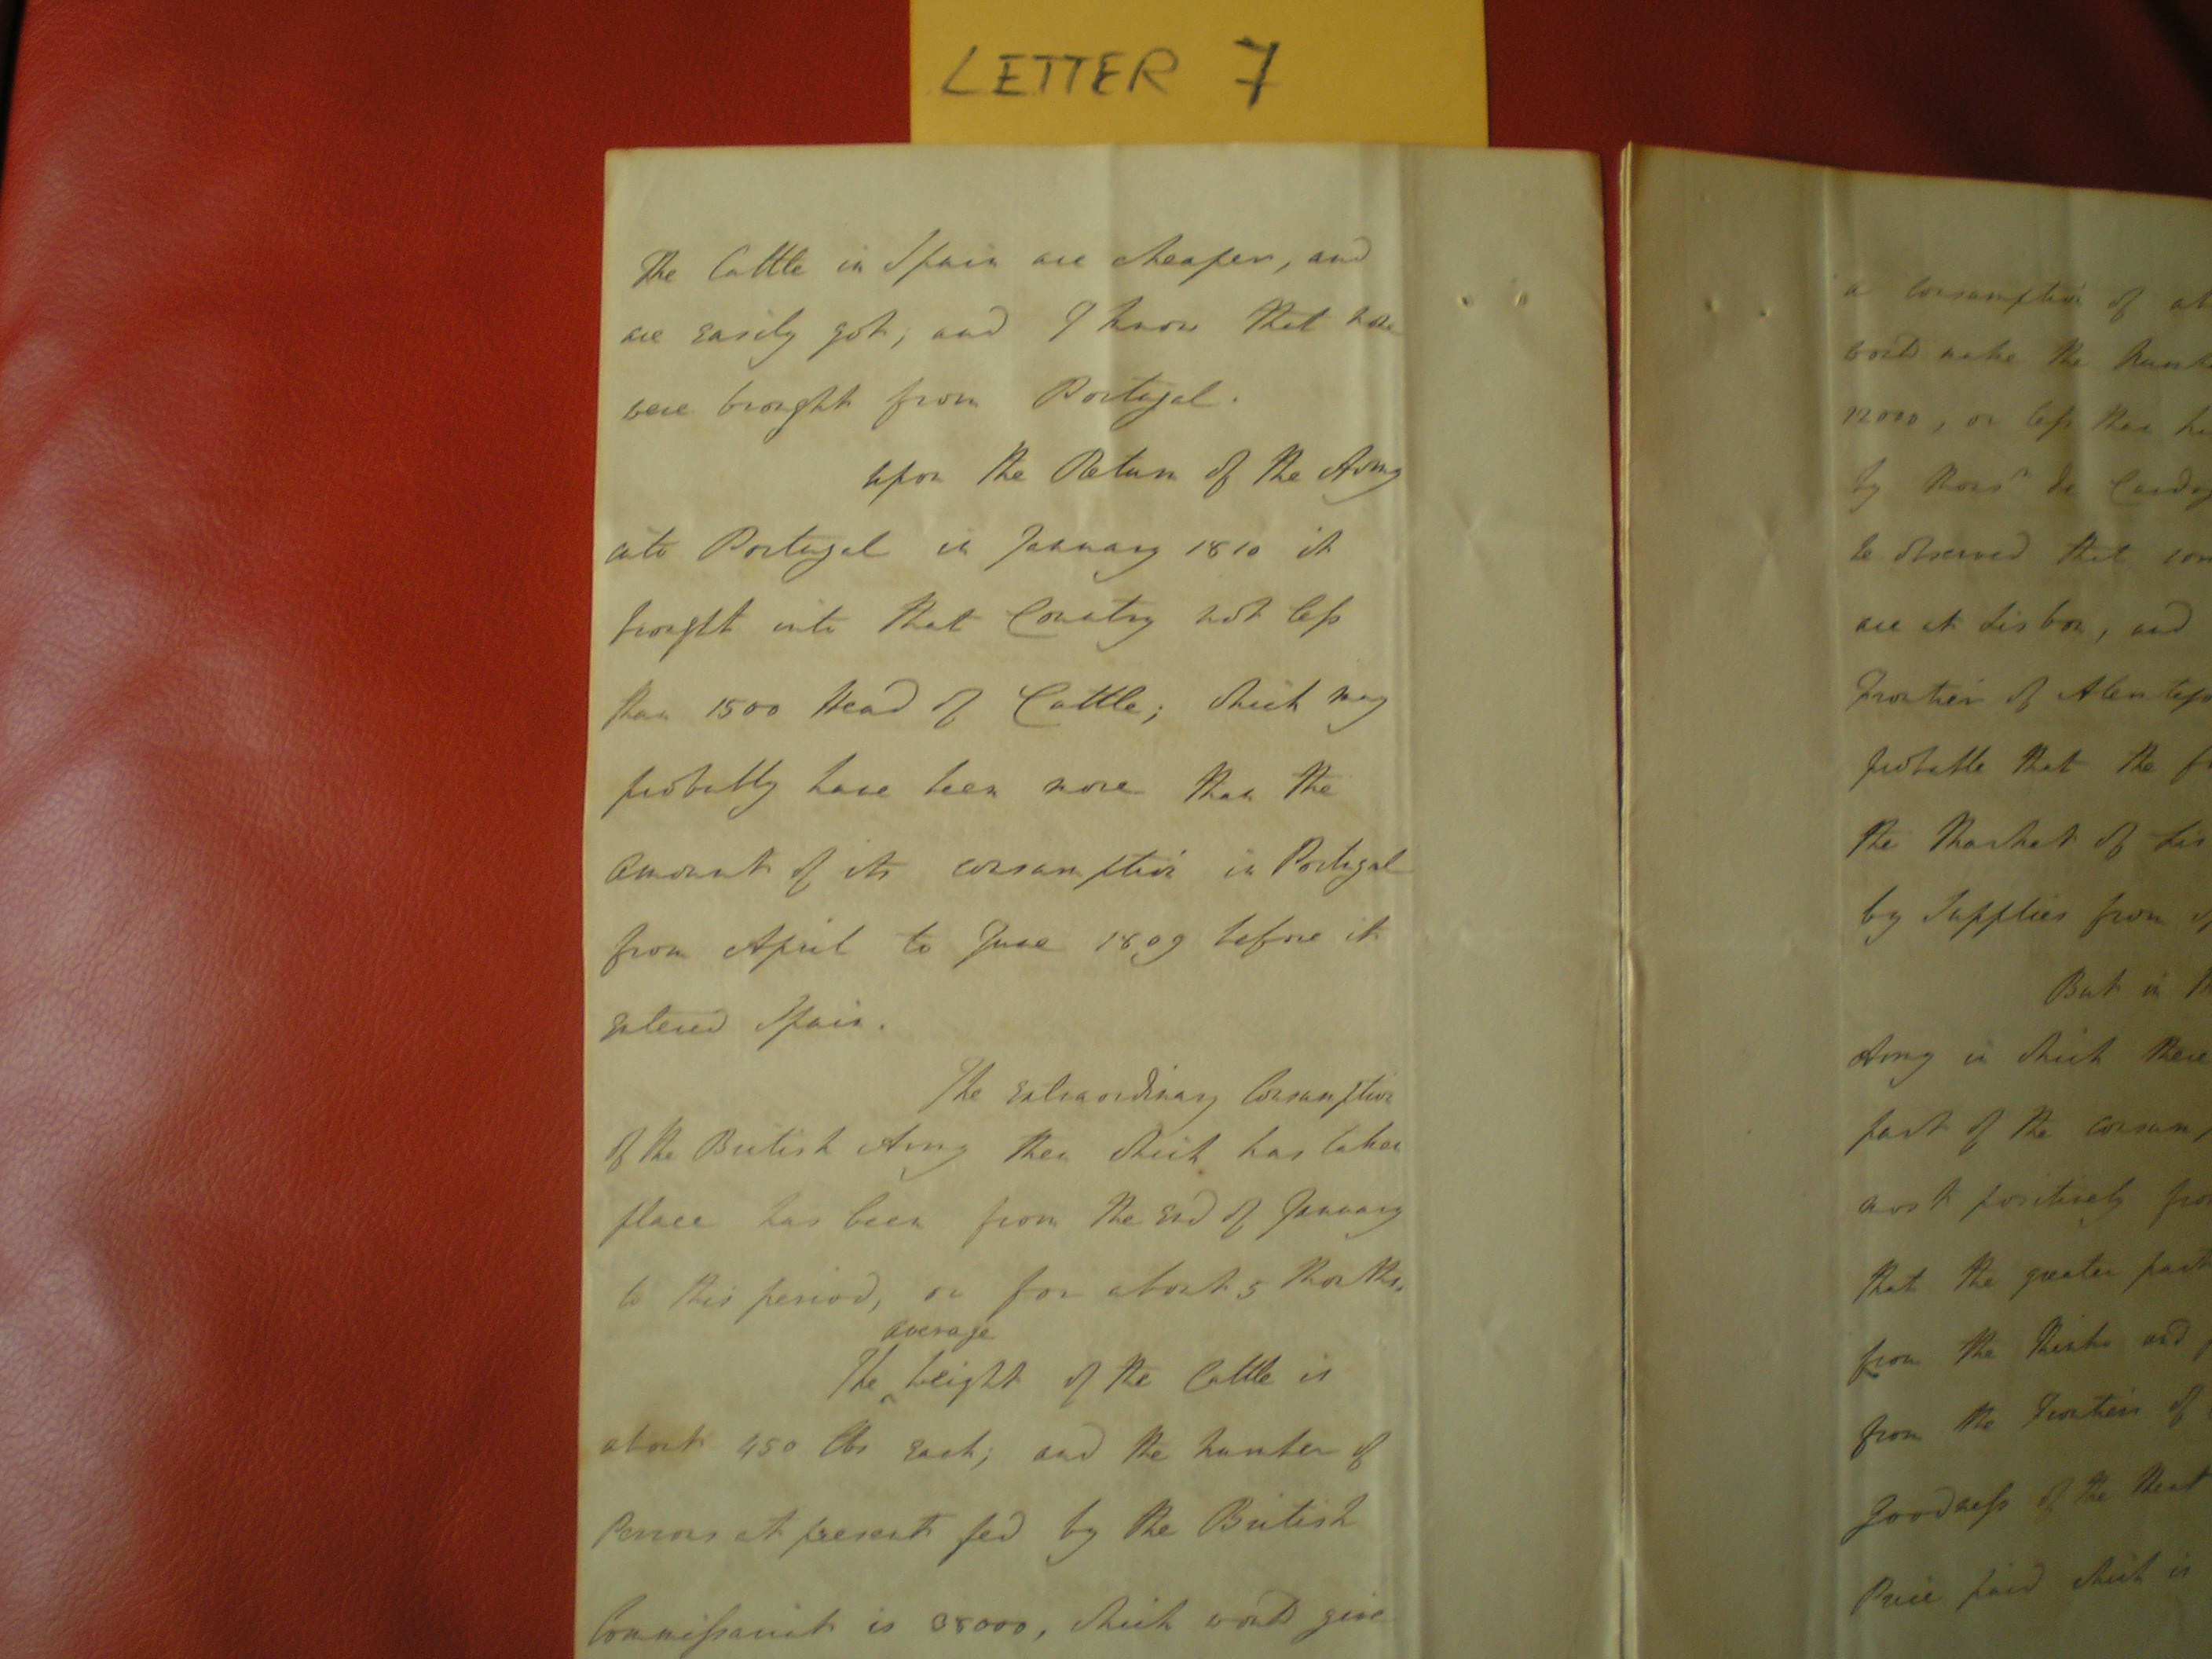 LETTER 7
The Cattle in Spain are cheaper, and
are easily got; and I know that none
were brought from Portugal.
Upon the Return of the Army
into Portugal in January 1810 it
brought into that Country not less
than 1500 Head of Cattle; which may
probably have been more than the
amount of its consumption in Portugal
from April to June 1809 before it
entered Spain.
The extraordinary Consumption
of the British Army then which has taken
place has been from the End of January
to this period, or for about 5 Months.
average
The weight of the Cattle is
about 450 lbs each; and the number of
Persons at present fed by the British
Commissariat is 38000, which would give
a consumption of
would make the
12000, or less than
by Monsr de
be observed that
are at Lisbon, and
Frontier of Alentejo
probable that the
the Market of Lis
by Supplies from
But in
Army in which there
part of the consum
most positively
that the greater part
from the Minho and
from the Frontiers of
Goodness of the Meat
Price paid which is